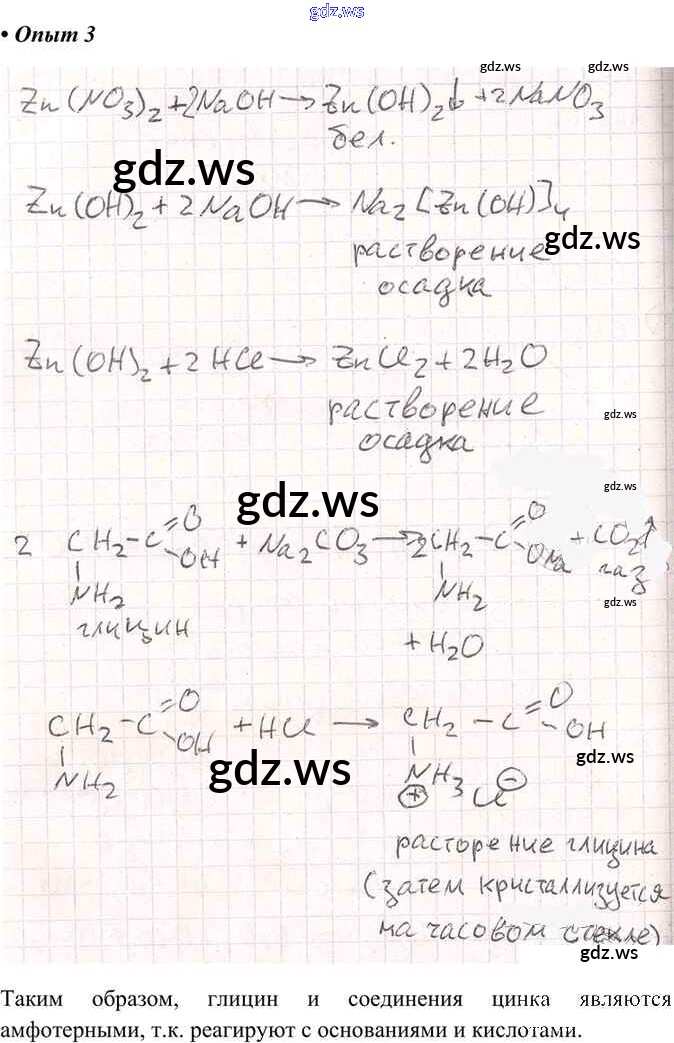 gdz.ws
• Опыт 3
gdz.ws
gdz.ws
Zn(NO3)2 + 2NaOH → Zn(OH)2↓ + 2NaNO3
бел.
gdz.ws
Zn(OH)2 + 2NaOH → Na2[Zn(OH)]4
gdz.ws
растворение
осадка
Zn(OH)2 + 2HCl → ZnCl2 + 2H2O
растворение
gdz.ws
осадка
gdz.ws
gdz.ws
2 CH2-C=O OH + Na2CO3 → 2CH2-C=O ONa + CO2↑
газ
NH2 NH2
gdz.ws
глицин
+ H2O
CH2-C=O OH + HCl → CH2-C=O OH
gdz.ws
gdz.ws
NH2 NH3 + Cl -
расторение глицина
(затем кристаллизуется
на часовом стекле)
gdz.ws
Таким образом, глицин и соединения цинка являются
амфотерными, т.к. реагируют с основаниями и кислотами.